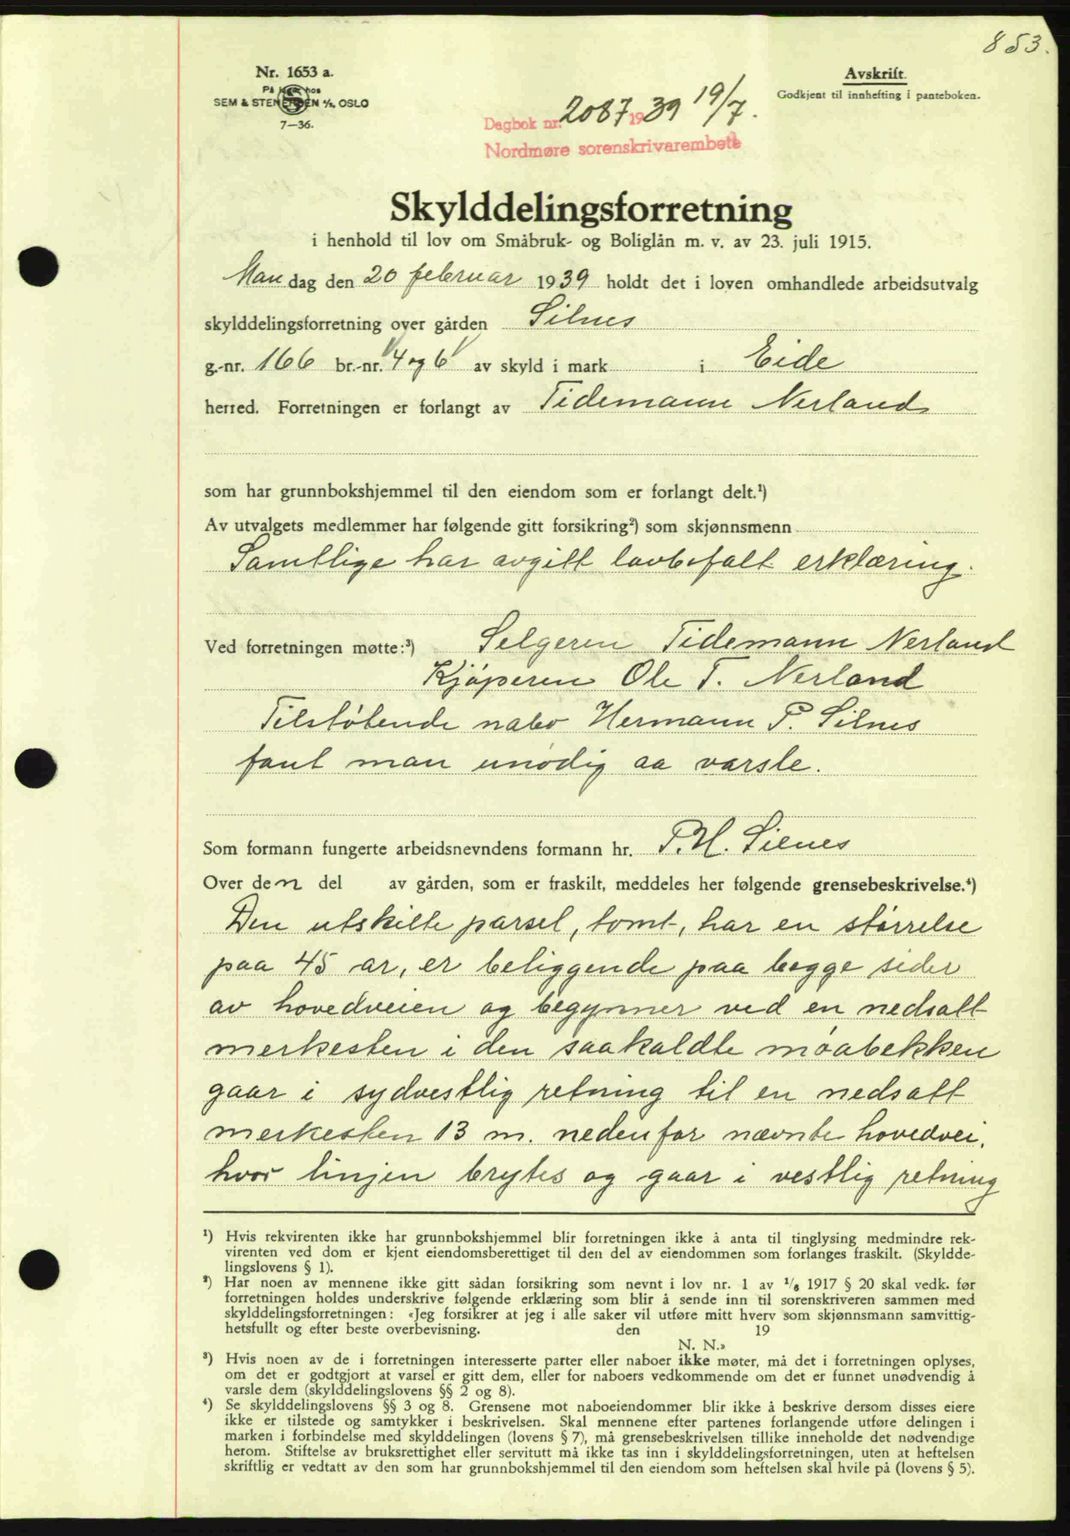 853.
Nr. 1653 a.
På lager hos
SEM & STENERSEN A/S, OSLO
7—36.
Avskrift.
Godkjent til innhefting i panteboken.
Dagbok nr. 2087 1939 19/7.
Nordmøre sorenskrivarembete
Skylddelingsforretning
i henhold til lov om Småbruk- og Boliglån m. v. av 23. juli 1915.
Mandag den 20 februar 1939 holdt det i loven omhandlede arbeidsutvalg
skylddelingsforretning over gården Silnes
g.-nr. 166 br.-nr. 4 og 6 av skyld i mark i Eide
herred. Forretningen er forlangt av Tidemann Nerland
som har grunnbokshjemmel til den eiendom som er forlangt delt.¹)
Av utvalgets medlemmer har følgende gitt forsikring²) som skjønnsmenn
Samtlige har avgitt lovbefalt erklæring.
Ved forretningen møtte:³) Selgeren Tidemann Nerland
Kjøperen Ole T. Nerland
Tilstøtende nabo Hermann P. Silnes
fant man unødig aa varsle.
Som formann fungerte arbeidsnevndens formann hr. P. H. Silnes
Over den del av gården, som er fraskilt, meddeles her følgende grensebeskrivelse.⁴)
Den utskilte parsel, tomt, har en størrelse
paa 45 ar, er beliggende paa begge sider
av hovedveien og begynner ved en nedsatt
merkesten i den saakaldte moabekken
gaar i sydvestlig retning til en nedsatt
merkesten 13 m. nedenfor nævnte hovedvei,
hvor linjen brytes og gaar i vestlig retning
¹) Hvis rekvirenten ikke har grunnbokshjemmel blir forretningen ikke å anta til tinglysing medmindre rek-
virenten ved dom er kjent eiendomsberettiget til den del av eiendommen som forlanges fraskilt. (Skyldde-
lingslovens § 1).
²) Har noen av mennene ikke gitt sådan forsikring som nevnt i lov nr. 1 av 1/6 1917 § 20 skal vedk. før
forretningen holdes underskrive følgende erklæring som blir å sende inn til sorenskriveren sammen med
skylddelingsforretningen: «Jeg forsikrer at jeg i alle saker vil utføre mitt hverv som skjønnsmann samvittig-
hetsfullt og efter beste overbevisning. den 19
N. N.»
³) Hvis noen av de i forretningen interesserte parter eller naboer ikke møter, må det i forretningen oplyses,
om det er godtgjort at varsel er gitt dem, eller for naboers vedkommende om det er funnet unødvendig å
varsle dem (skylddelingslovens §§ 2 og 8).
⁴) Se skylddelingslovens §§ 3 og 8. Grensene mot naboeiendommer blir ikke å beskrive dersom disses eiere
ikke er tilstede og samtykker i beskrivelsen. Skal mennene efter partenes forlangende utføre delingen i
marken i forbindelse med skylddelingen (lovens § 7), må grensebeskrivelsen tillike inneholde det nødvendige
herom. Stiftelse av bruksrettighet eller servitutt må ikke tas inn i skylddelingsforretningen, uten at heftelsen
skriftlig er vedtatt av den som har grunnbokshjemmel til den eiendom som heftelsen skal hvile på (lovens § 5).